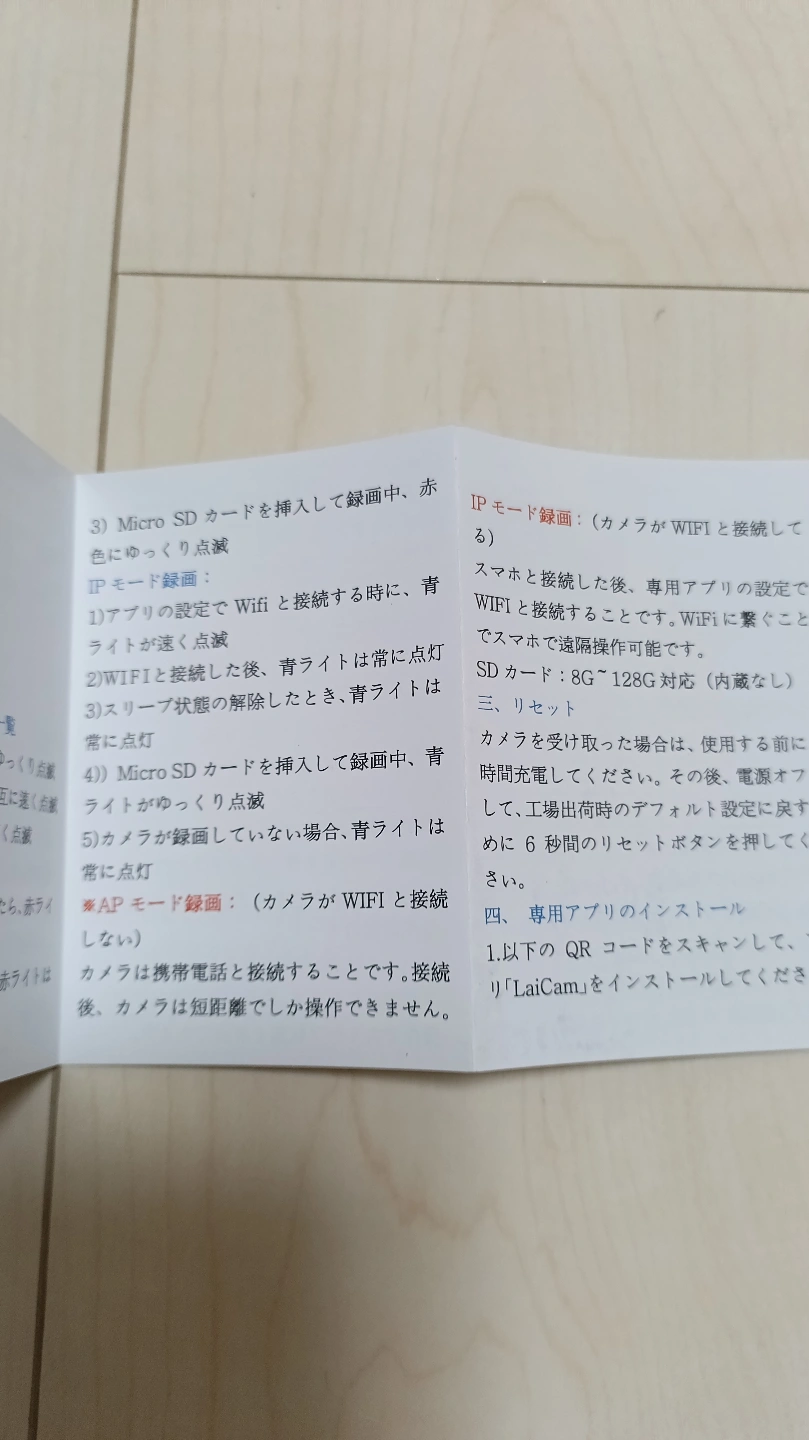 一覧
ゆっくり点滅
互に速く点滅
く点滅
たら、赤ライ
赤ライトは
3) Micro SD カードを挿入して録画中、赤
色にゆっくり点滅
IP モード録画：
1)アプリの設定で Wifi と接続する時に、青
ライトが速く点滅
2)WIFIと接続した後、青ライトは常に点灯
3)スリープ状態の解除したとき、青ライトは
常に点灯
4)) Micro SD カードを挿入して録画中、青
ライトがゆっくり点滅
5)カメラが録画していない場合、青ライトは
常に点灯
※AP モード録画：（カメラが WIFI と接続
しない）
カメラは携帯電話と接続することです。接続
後、カメラは短距離でしか操作できません。
IP モード録画：（カメラが WIFI と接続して
る）
スマホと接続した後、専用アプリの設定で
WIFI と接続することです。WiFi に繋ぐこと
でスマホで遠隔操作可能です。
SD カード：8G~128G 対応（内蔵なし）
三、リセット
カメラを受け取った場合は、使用する前に
時間充電してください。その後、電源オフ
して、工場出荷時のデフォルト設定に戻す
めに 6 秒間のリセットボタンを押してく
さい。
四、 専用アプリのインストール
1.以下の QR コードをスキャンして、
リ「LaiCam」をインストールしてくださ